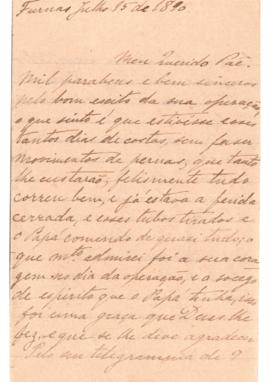 Furnas Julho 15 de 1890.
Meu Querido Pae.
Mil parabens e bem sinceros
pelo bom exito da sua operação
o que sinto é que estivesse esses
tantos dias de costas, sem fazer
movimentos de pernas, o que tanto
lhe custarão, felismente tudo
correu bem, e já estava a ferida
cerrada, e esses tubos tirados e
o Papá comendo de quasi tudo, o
que mto admirei foi a sua cora
gem no dia da operação, e o socego
de espirito que o Papá tinha,
foi uma graça que Deus lhe
fez, e que se lhe deve agradecer
Pelo seu telegramma de 9